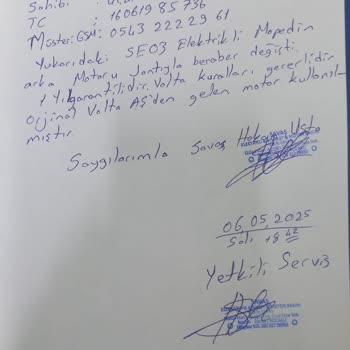 Sahibi :
TC : 16061985736
Müşteri GSM: 0543 222 29 61
Yukarıdaki SE03 Elektrikli Mopedin
arka Motoru Jantıyla beraber değişti.
1 Yıl garantilidir. Volta kuralları geçerlidir
Orjinal Volta AŞ'den gelen motor kullanıl-
mıştır.
Saygılarımla Savaş
SAVAŞ
06.05.2025
Salı 18 42
Yetkili Servis
SAVAŞ